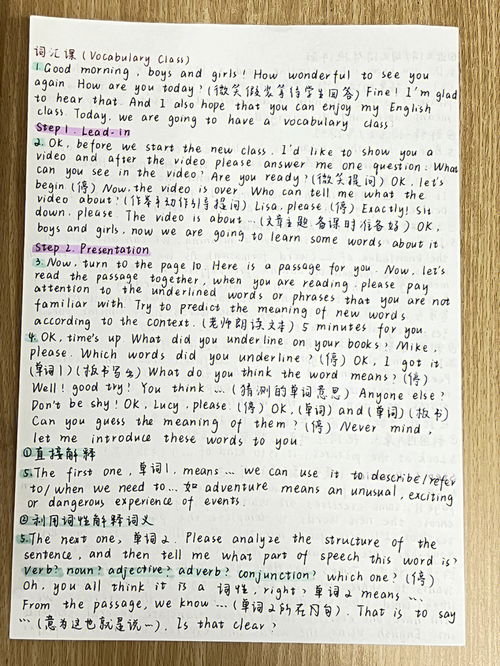 词汇课 (Vocabulary Class)
1. Good morning, boys and girls! How wonderful to see you
again. How are you today? (微笑假装等待学生回答) Fine! I'm glad
to hear that. And I also hope that you can enjoy my English
class. Today, we are going to have a vocabulary class.
Step 1. Lead-in
2. OK, before we start the new class. I'd like to show you a
video and after the video please answer me one question: What
can you see in the video? Are you ready? (微笑提问) OK, let's
begin (停) Now, the video is over. Who can tell me what the
video about? (作举手动作引导提问) Lisa, please. (停) Exactly! Sit
down, please. The video is about... (文章主题,备课时准备好) OK,
boys and girls, now we are going to learn some words about it.
Step 2. Presentation
3. Now, turn to the page 10. Here is a passage for you. Now, let's
read the passage together, when you are reading, please pay
attention to the underlined words or phrases that you are not
familiar with. Try to predict the meaning of new words
according to the context. (老师朗读文本) 5 minutes for you.
4. OK, time's up. What did you underline on your books? Mike,
please. Which words did you underline? (停) OK, I got it.
(单词1) (板书写出) What do you think the word means? (停)
Well! good try! You think ... (猜测的单词意思) Anyone else?
Don't be shy! OK, Lucy, please. (停) OK, (单词) and (单词) (板书)
Can you guess the meaning of them? (停) Never mind,
let me introduce these words to you.
①直接解释
5. The first one, 单词1, means ... we can use it to describe/refer
to/ when we need to... 如 adventure means an unusual, exciting
or dangerous experience of events.
②利用词性解释词义
5. The next one, 单词2. Please analyze the structure of the
sentence, and then tell me what part of speech this word is?
Verb? noun? adjective? adverb? conjunction? which one? (停)
Oh, you all think it is a 词性, right? 单词2 means ...
From the passage, we know ... (单词2所在的句). That is to say
... (意为这也就是说...). Is that clear?